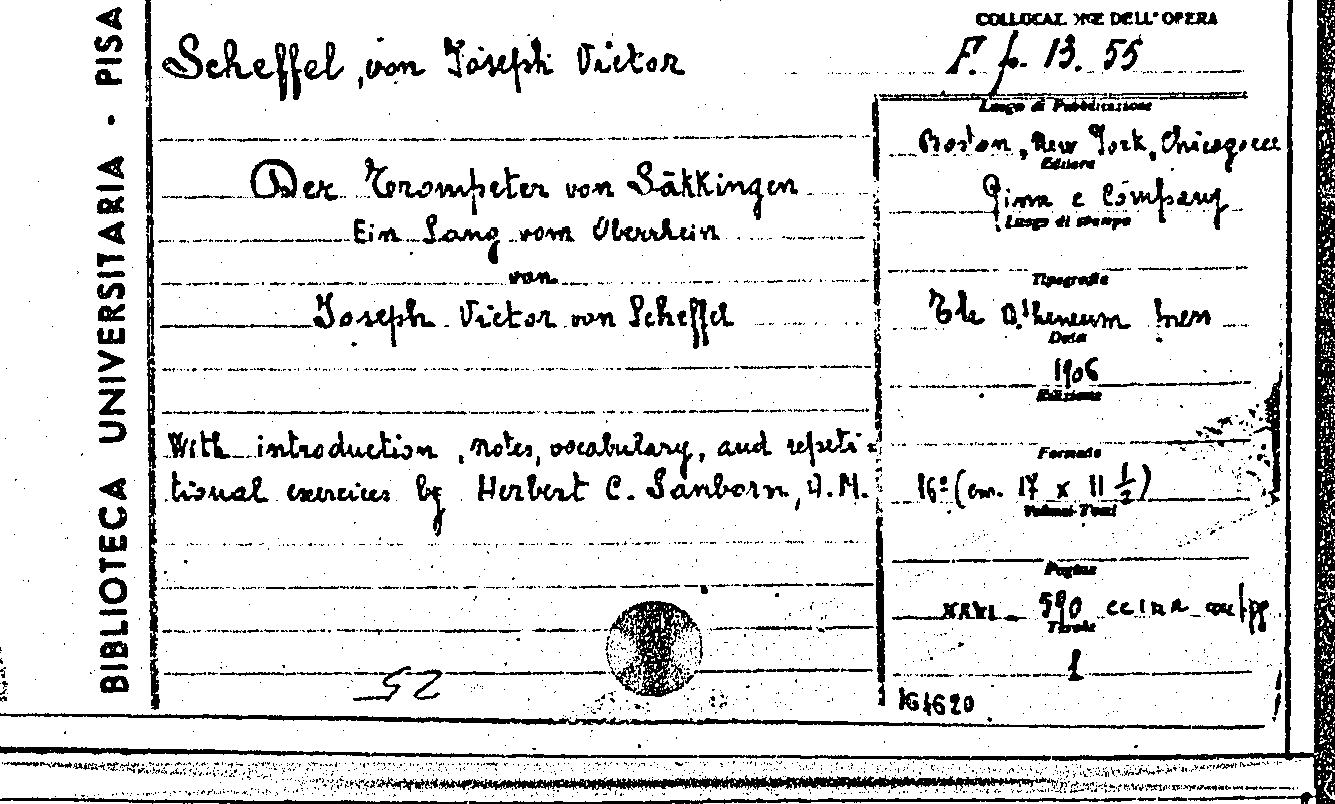 BIBLIOTECA UNIVERSITARIA · PISA
COLLOCAZ NE DELL'OPERA
F. p. 13. 55
Scheffel, von Joseph Victor
Der Trompeter von Säkkingen
Ein Sang vom Oberrhein
von
Joseph Victor von Scheffel
With introduction, notes, vocabulary, and repeti-
tional exercices by Herbert C. Sanborn, A.M.
52
Luogo di Pubblicazione
Boston, New York, Chicago ecc
Editore
Ginn e Company
Luogo di stampa
Tipografia
The Atheneum Press
Data
1906
Edizione
Formato
16º (cm. 17 x 11 1/2)
Volumi-Tomi
Pagine
XXVI - 590
Tavole
1
164620